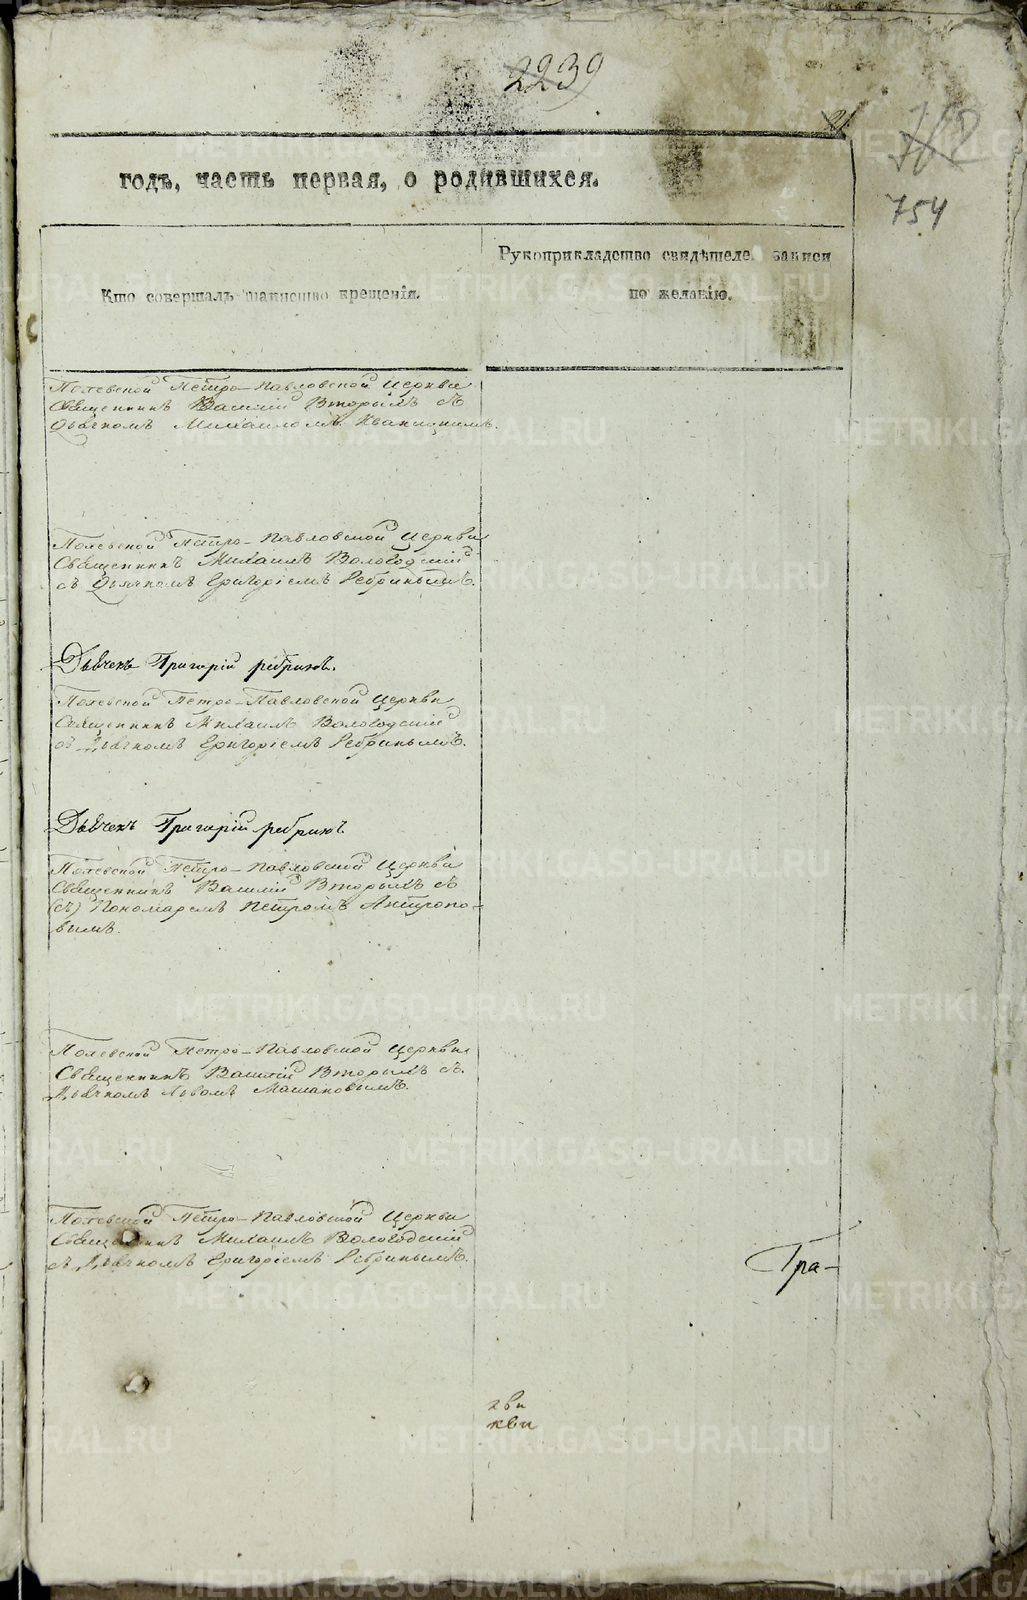 2239
21
762
754
годъ, часть первая, о родившихся.
Кто совершалъ таинство крещенія.
Рукоприкладство свидѣтелей записи
по желанію.
Полевской Петро-Павловской Церкви
Священникъ Василій Вторыхъ съ
Дьячкомъ Михаиломъ
Полевской Петро-Павловской Церкви
Священникъ Михаилъ Вологодскій
съ Дьячкомъ Григоріемъ Ребринымъ.
Дьячекъ Григорій ребринъ.
Полевской Петро-Павловской Церкви
Священникъ Михаилъ Вологодскій
съ Дьячкомъ Григоріемъ Ребринымъ.
Дьячекъ Григорій ребринъ.
Полевской Петро-Павловской Церкви
Священникъ Василій Вторыхъ съ
(съ) Пономаремъ Петромъ Антропо-
вымъ.
Полевской Петро-Павловской Церкви
Священникъ Василій Вторыхъ съ
Дьячкомъ Львомъ
Полевской Петро-Павловской Церкви
Священникъ Михаилъ Вологодскій
съ Дьячкомъ Григоріемъ Ребринымъ.
Гра-
METRIKI.GASO-URAL.RU